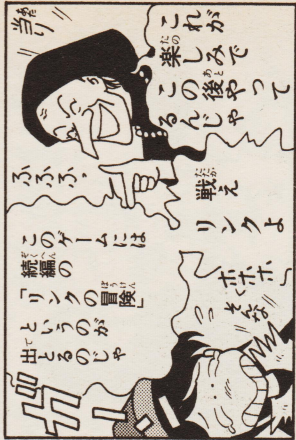 これが
楽しみで
この後やって
るんじゃ
当り
戦え
リンクよ
ふふふっ
ホホホ
そんな
このゲームには
続編の
「リンクの冒険」
というのが
出とるのじゃ
ガー